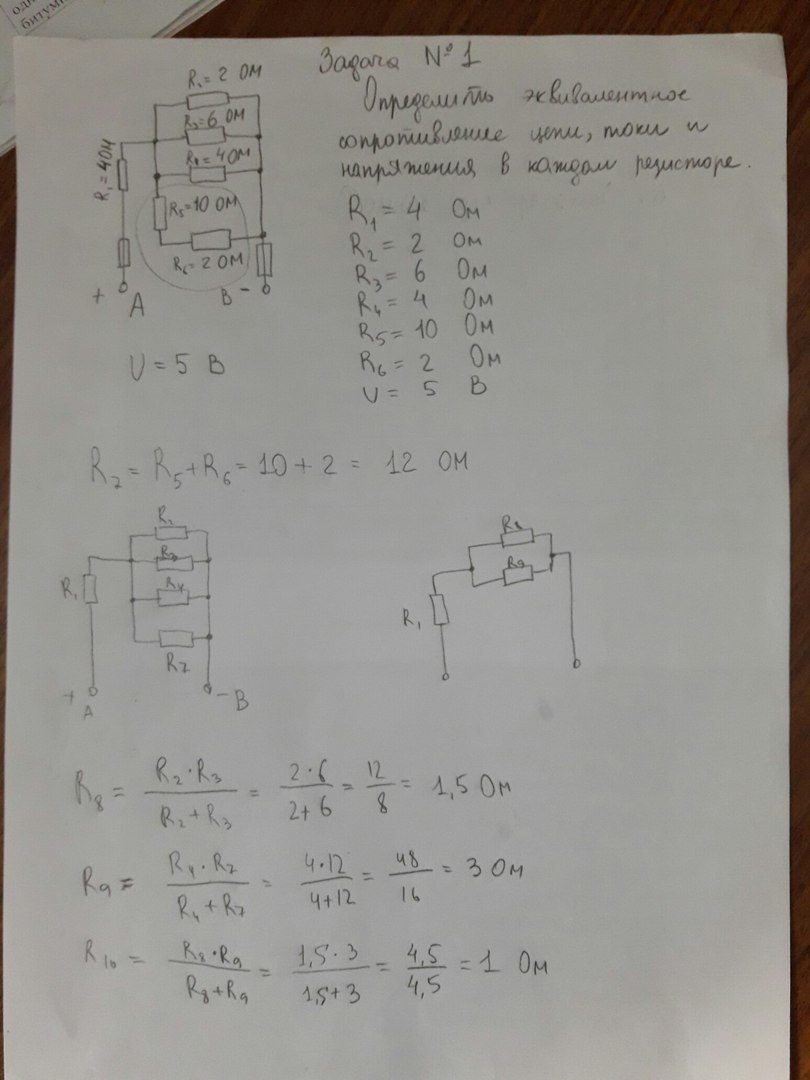 Задача № 1
Определить эквивалентное
сопротивление цепи, токи и
напряжения в каждом резисторе.
R₂=2 ОМ
R₃=6 ОМ
R₄=4 ОМ
R₁=4 ОМ
R₅=10 ОМ
R₆=2 ОМ
+ A
B -
U = 5 В
R₁ = 4 Ом
R₂ = 2 Ом
R₃ = 6 Ом
R₄ = 4 Ом
R₅ = 10 Ом
R₆ = 2 Ом
U = 5 В
R₇ = R₅+R₆ = 10 + 2 = 12 ОМ
R₂
R₃
R₄
R₁
R₇
+ A
- B
R₈
R₉
R₁
R₈ = R₂·R₃ / R₂+R₃ = 2·6 / 2+6 = 12 / 8 = 1,5 Ом
R₉ = R₄·R₇ / R₄+R₇ = 4·12 / 4+12 = 48 / 16 = 3 Ом
R₁₀ = R₈·R₉ / R₈+R₉ = 1,5·3 / 1,5+3 = 4,5 / 4,5 = 1 Ом